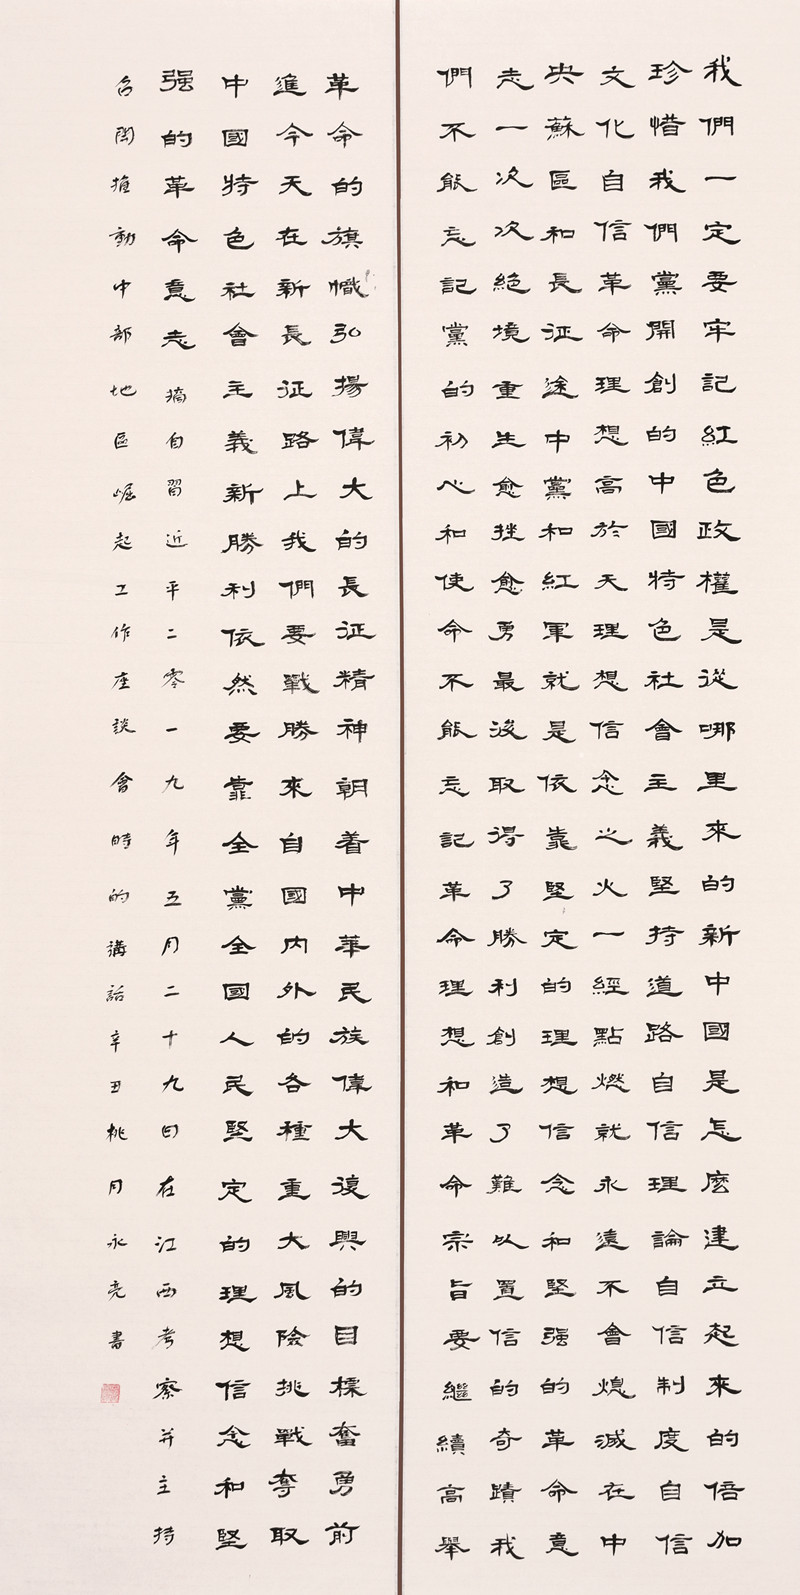 我們一定要牢記紅色政權是從哪里來的新中國是怎麽建立起來的倍加
珍惜我們黨開創的中國特色社會主義堅持道路自信理論自信制度自信
文化自信革命理想高於天理想信念之火一經點燃就永遠不會熄滅在中
央蘇區和長征途中黨和紅軍就是依靠堅定的理想信念和堅强的革命意
志一次次絶境重生愈挫愈勇最後取得了勝利創造了難以置信的奇蹟我
們不能忘記黨的初心和使命不能忘記革命理想和革命宗旨要繼續高舉
革命的旗幟弘揚偉大的長征精神朝着中華民族偉大復興的目標奮勇前
進今天在新長征路上我們要戰勝來自國内外的各種重大風險挑戰奪取
中國特色社會主義新勝利依然要靠全黨全國人民堅定的理想信念和堅
强的革命意志 摘自習近平二零一九年五月二十九日在江西考察并主持
召開推動中部地區崛起工作座談會時的講話辛丑桃月永亮書